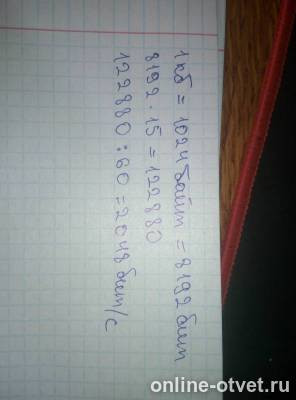 1 кб = 1024 байт = 8192 бит
8192 · 15 = 122880
122880 : 60 = 2048 бит/с
online-otvet.ru